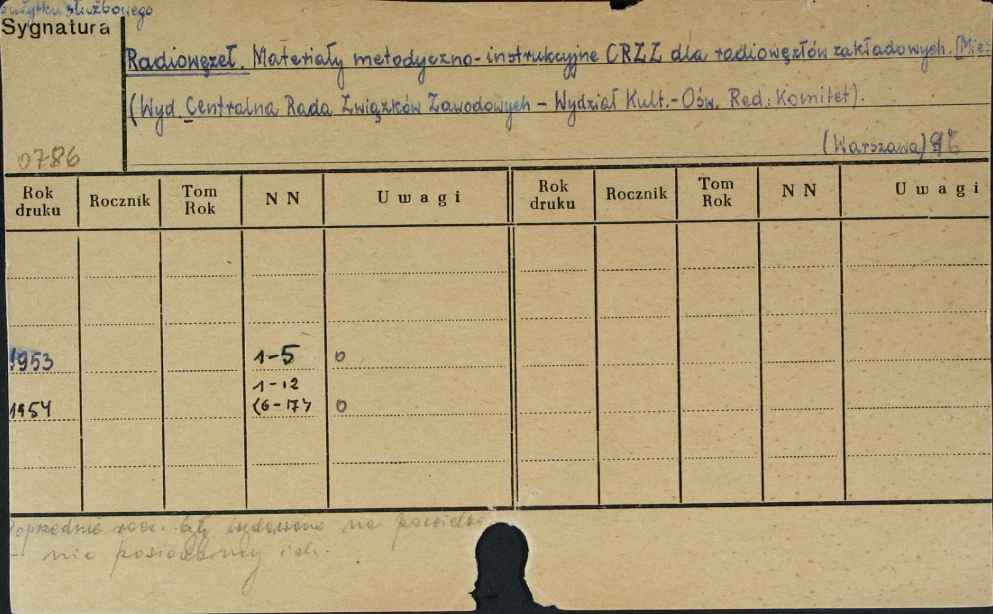 użytku służbowego
Sygnatura
Radiowęzeł. Materiały metodyczno-instrukcyjne CRZZ dla radiowęzłów zakładowych. [Mie:
(Wyd. Centralna Rada Związków Zawodowych – Wydział Kult.-Ośw. Red: Komitet).
(Warszawa)
0786
Rok druku Rocznik Tom Rok NN Uwagi Rok druku Rocznik Tom Rok NN Uwagi
1953 1-5 0
1-12
1954 (6-17) 0
były wydawane na
nie posiadamy ich.